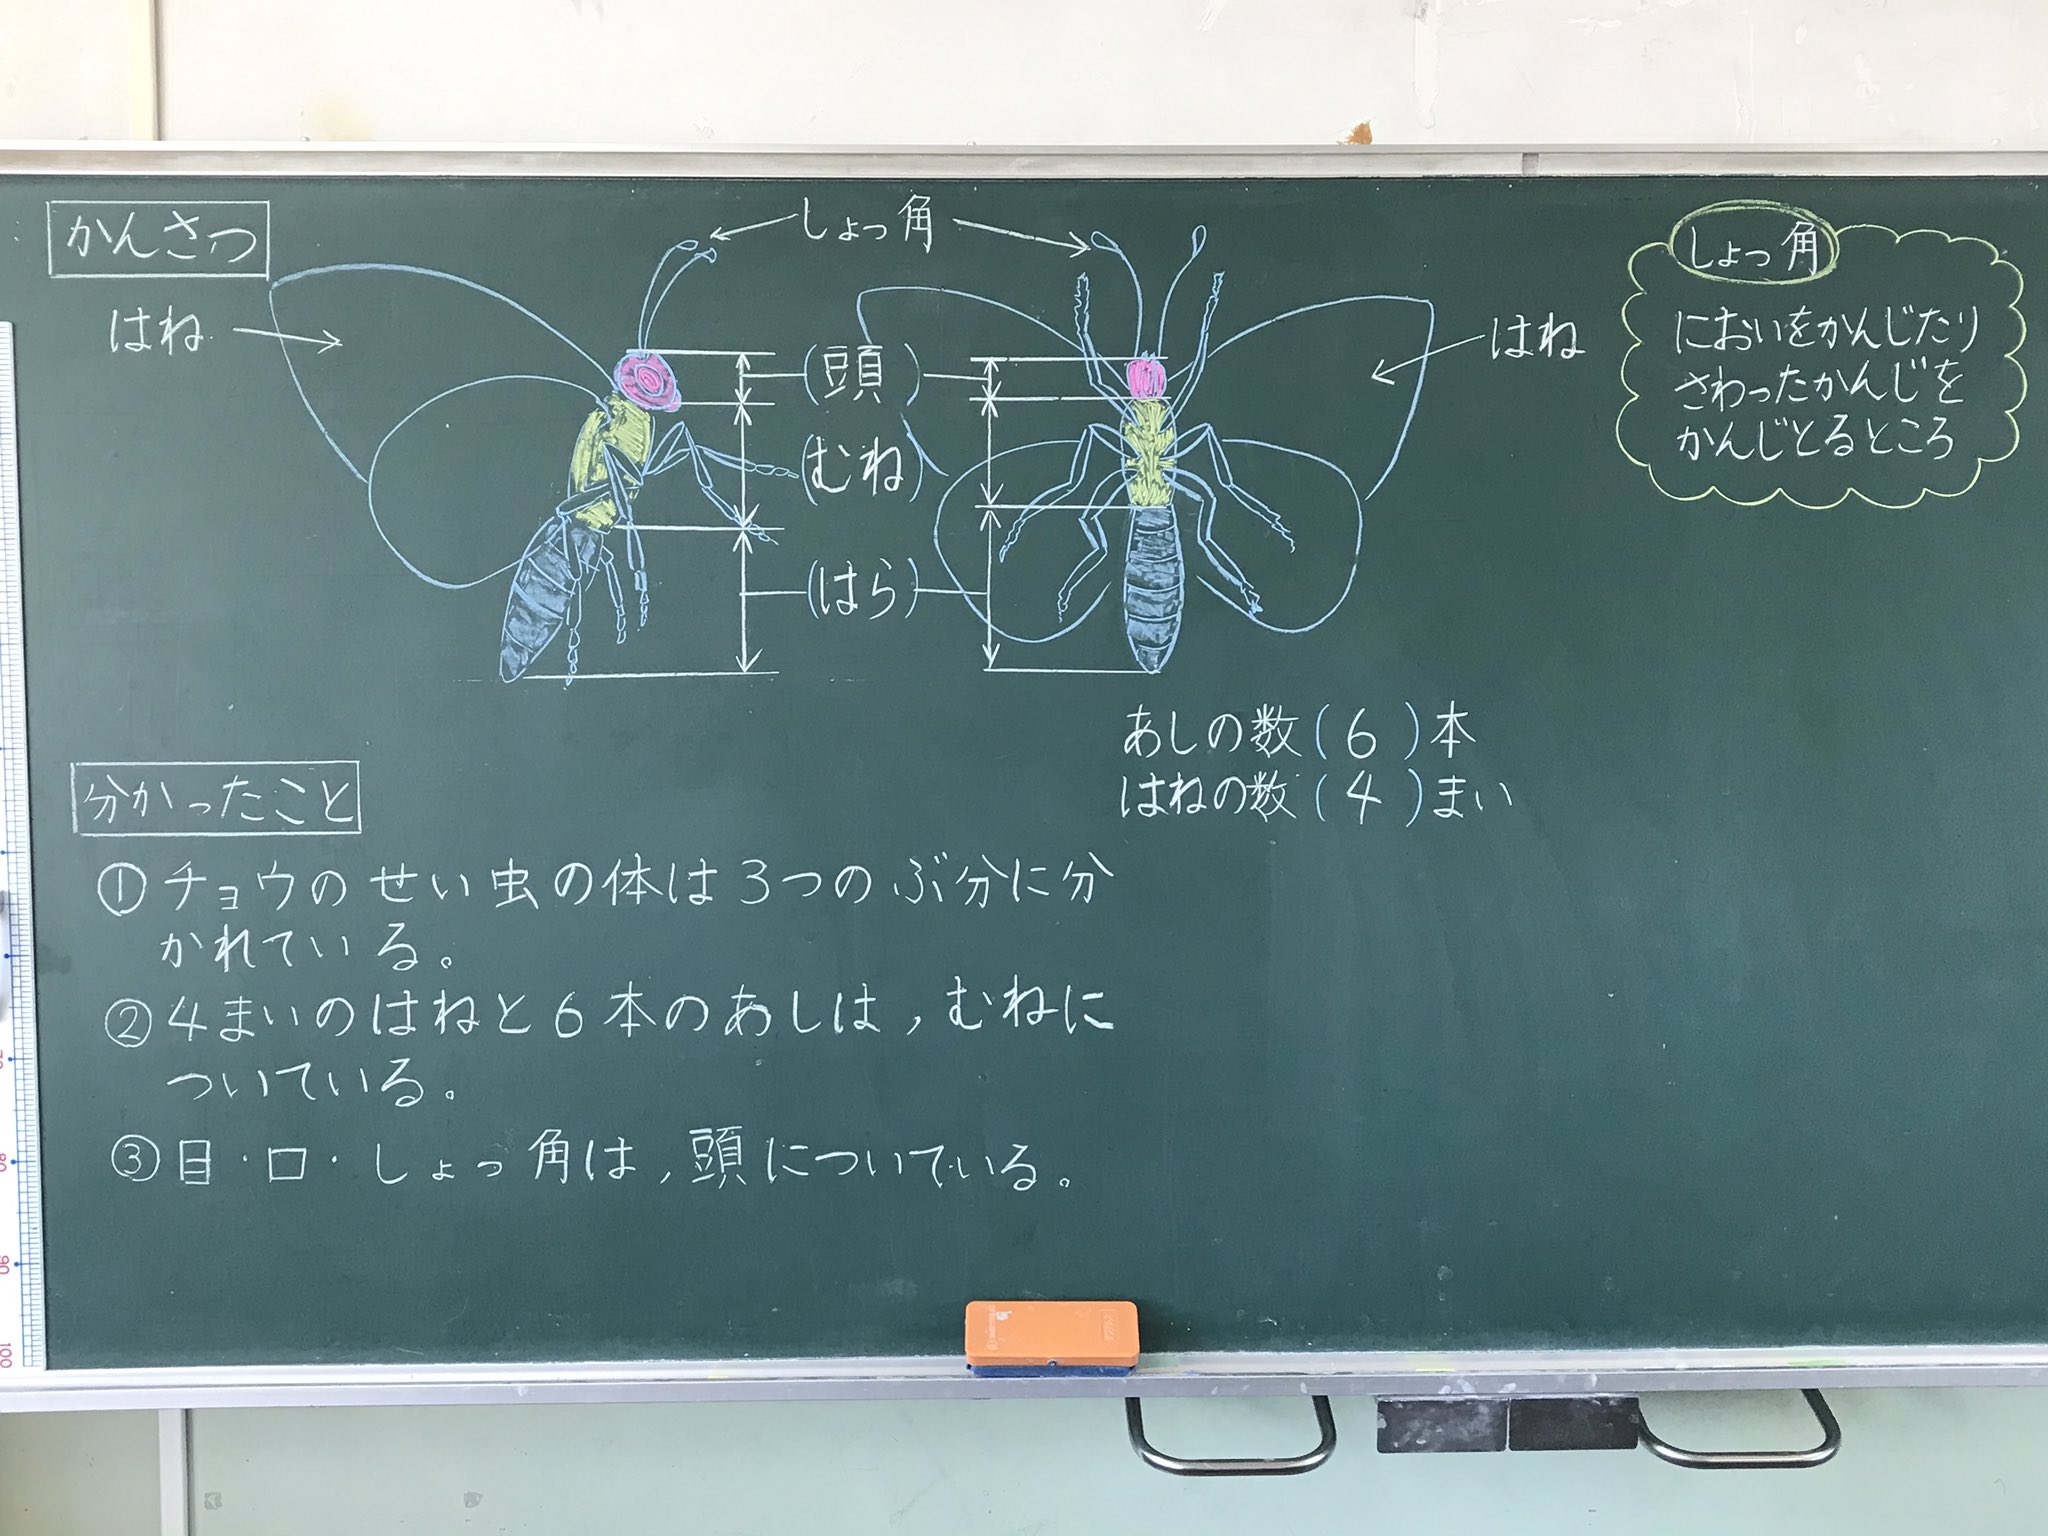 かんさつ
しょっ角
はね
はね
(頭)
(むね)
(はら)
しょっ角
においをかんじたり
さわったかんじを
かんじとるところ
あしの数(6)本
はねの数(4)まい
分かったこと
①チョウのせい虫の体は3つのぶ分に分
かれている。
②4まいのはねと6本のあしは,むねに
ついている。
③目・口・しょっ角は,頭についている。
90
100